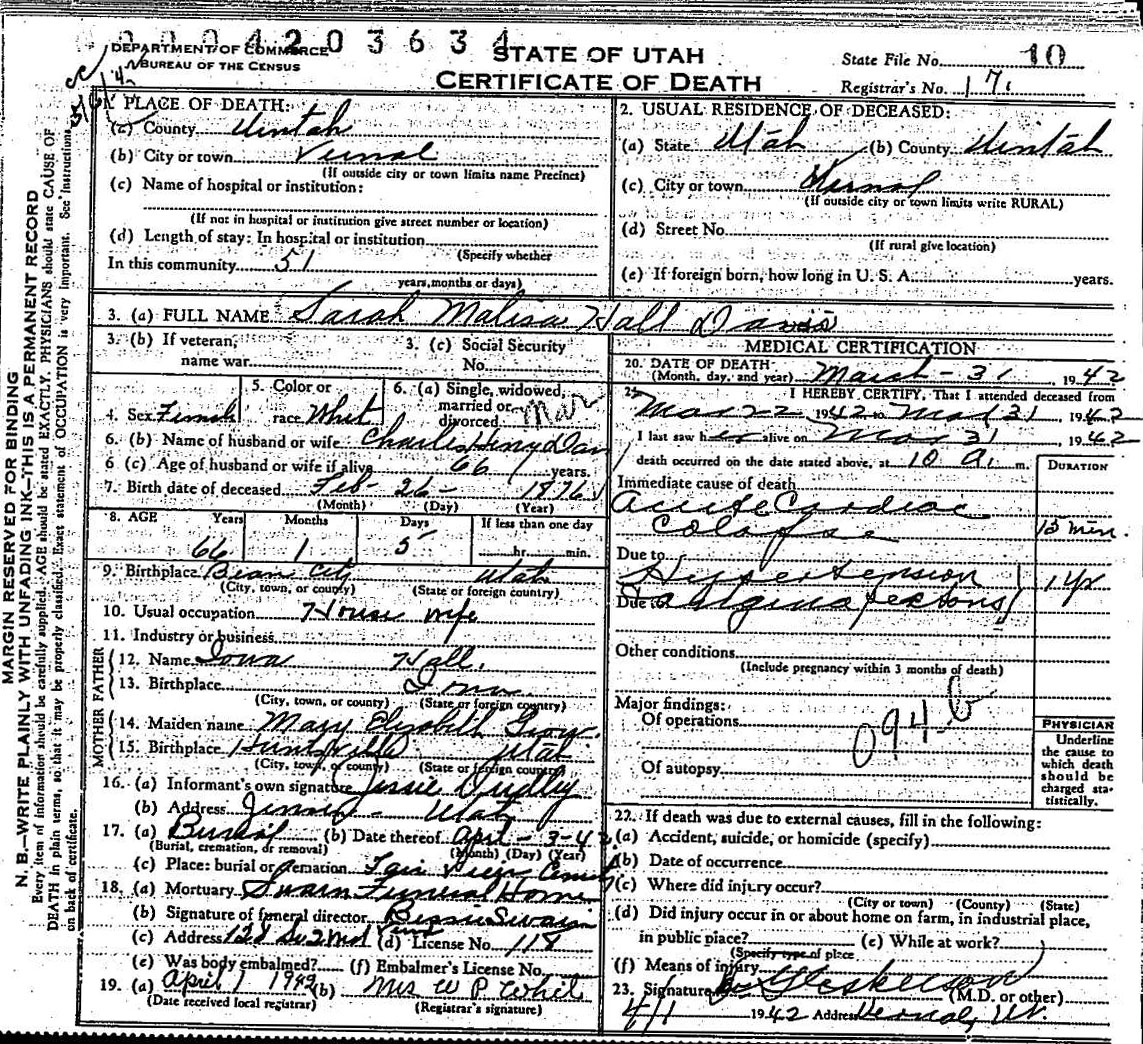 0004203634
DEPARTMENT OF COMMERCE
BUREAU OF THE CENSUS
STATE OF UTAH
CERTIFICATE OF DEATH
State File No. 10
Registrar's No. 17
MARGIN RESERVED FOR BINDING
N. B.—WRITE PLAINLY WITH UNFADING INK—THIS IS A PERMANENT RECORD
Every item of information should be carefully supplied. AGE should be stated EXACTLY. PHYSICIANS should state CAUSE OF
DEATH in plain terms, so that it may be properly classified. Exact statement of OCCUPATION is very important. See Instructions
on back of certificate.
1. PLACE OF DEATH:
(a) County Uintah
(b) City or town Vernal
(If outside city or town limits name Precinct)
(c) Name of hospital or institution:
(If not in hospital or institution give street number or location)
(d) Length of stay: In hospital or institution
(Specify whether
In this community 51
years, months or days)
2. USUAL RESIDENCE OF DECEASED:
(a) State Utah (b) County Uintah
(c) City or town Vernal
(If outside city or town limits write RURAL)
(d) Street No.
(If rural give location)
(e) If foreign born, how long in U. S. A. years.
3. (a) FULL NAME Sarah Malisa Hall Davis
3. (b) If veteran,
name war
3. (c) Social Security
No.
4. Sex Femal
5. Color or
race Whit
6. (a) Single, widowed,
married or
divorced Mar
6. (b) Name of husband or wife Charles Henry Dav
6 (c) Age of husband or wife if alive 66 years.
7. Birth date of deceased Feb - 26 - 1876
(Month) (Day) (Year)
8. AGE Years Months Days If less than one day
66 1 5 hr. min.
9. Birthplace City Utah
(City, town, or county) (State or foreign country)
10. Usual occupation House wife
11. Industry or business
FATHER
12. Name Iowa Hall
13. Birthplace Iowa
(City, town, or county) (State or foreign country)
MOTHER
14. Maiden name Mary Elizabeth
15. Birthplace Huntsville Utah
(City, town, or county) (State or foreign country)
16. (a) Informant's own signature Jessie Dudley
(b) Address Jensen - Utah
17. (a) Burial (b) Date thereof April - 3 - 42
(Burial, cremation, or removal) (Month) (Day) (Year)
(c) Place: burial or cremation Fair View
18. (a) Mortuary Swain Funeral Home
(b) Signature of funeral director Bessie Swain
(c) Address 128 (d) License No. 118
(e) Was body embalmed? (f) Embalmer's License No.
19. (a) April 1 1942 (b) Mrs W P Whit
(Date received local registrar) (Registrar's signature)
MEDICAL CERTIFICATION
20. DATE OF DEATH
(Month, day, and year) March - 31, 1942
21. I HEREBY CERTIFY, That I attended deceased from
Mar 22 1942 to Mar 31, 1942
I last saw her alive on Mar 31, 1942
death occurred on the date stated above, at 10 A. m.
DURATION
Immediate cause of death
Acute Cardiac
Colapse 15 min.
Due to
Hypertension
Due to Angina pectoris
Other conditions
(Include pregnancy within 3 months of death)
Major findings:
Of operations
094 b
Of autopsy
PHYSICIAN
Underline
the cause to
which death
should be
charged sta-
tistically.
22. If death was due to external causes, fill in the following:
(a) Accident, suicide, or homicide (specify)
(b) Date of occurrence
(c) Where did injury occur?
(City or town) (County) (State)
(d) Did injury occur in or about home on farm, in industrial place,
in public place? (e) While at work?
(Specify type of place
(f) Means of injury
23. Signature (M.D. or other)
4/1 1942 Address Vernal, Ut.